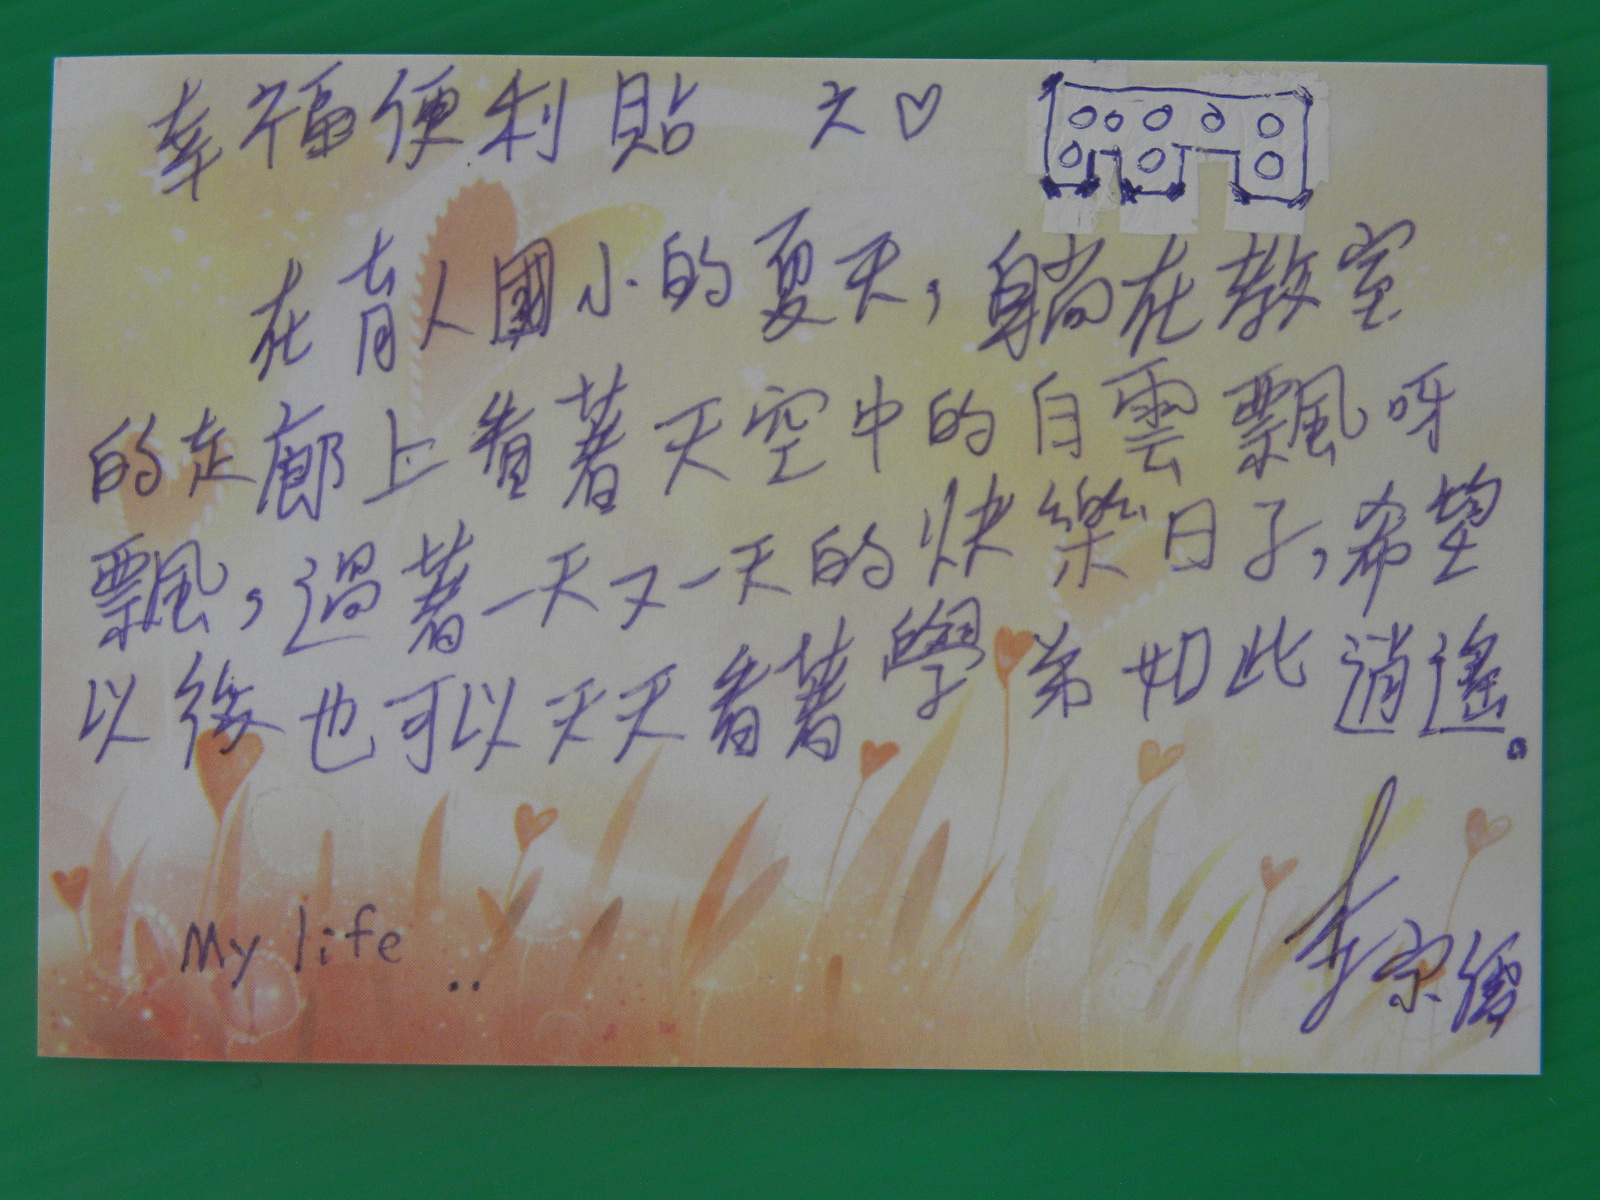 幸福便利貼 之♡
在育人國小的夏天,躺在教室
的走廊上看著天空中的白雲飄呀
飄,過著一天又一天的快樂日子,希望
以後也可以天天看著學弟如此逍遙。
李宗儒
My life..